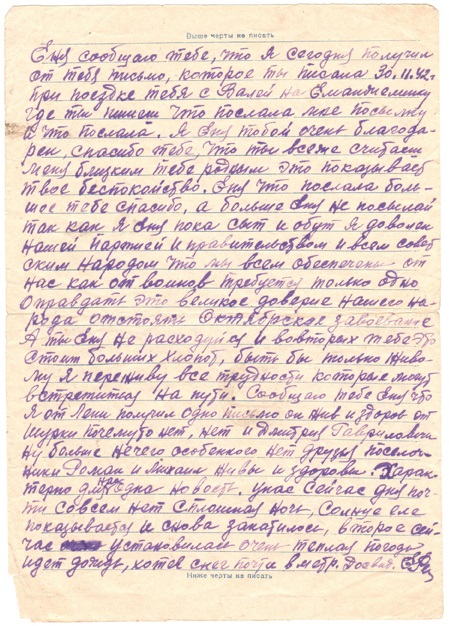 Выше черты не писать
Еня сообщаю тебе, что я сегодня получил
от тебя письмо, которое ты писала 30.11.42г
при поездке тебя с Валей на
где ты пишеш что послала мне посылку
и что послала. Я Еня тобой очень благода-
рен, спасибо тебе, что ты всеже считаеш
меня близким тебе родным это показывает
твое беспокойство. Еня что послала боль-
шое тебе спасибо, а больше Еня не посылай
так как я Еня пока сыт и обут я доволен
нашей партией и правительством и всем совет
ским народом что мы всем обеспечены от
нас как от воинов требуется только одно
оправдать это великое доверие нашего на-
рода отстоять Октябрьское завоевание
А ты Еня не расходуйся и вовторых тебе это
стоит больших хлопот, быть бы только живо-
му я переживу все трудности которые могут
встретится на пути. Сообщаю тебе Еня что
я от Лени получил одно письмо он жив и здоров от
Шурки почемуто нет, нет и Дмитрия Гавриловича
Ну больше нечего особенного нет друзья поселоч-
ники Роман и Михаил живы и здоровы. Харак-
терно для нас одна новость. унас сейчас дня поч-
ти совсем нет сплошная ночь, Солнце еле
показывается и снова закатилось, второе сей-
час установилась очень теплая погода
идет дождь, хотев снег почти в метр.
Ниже черты не писать